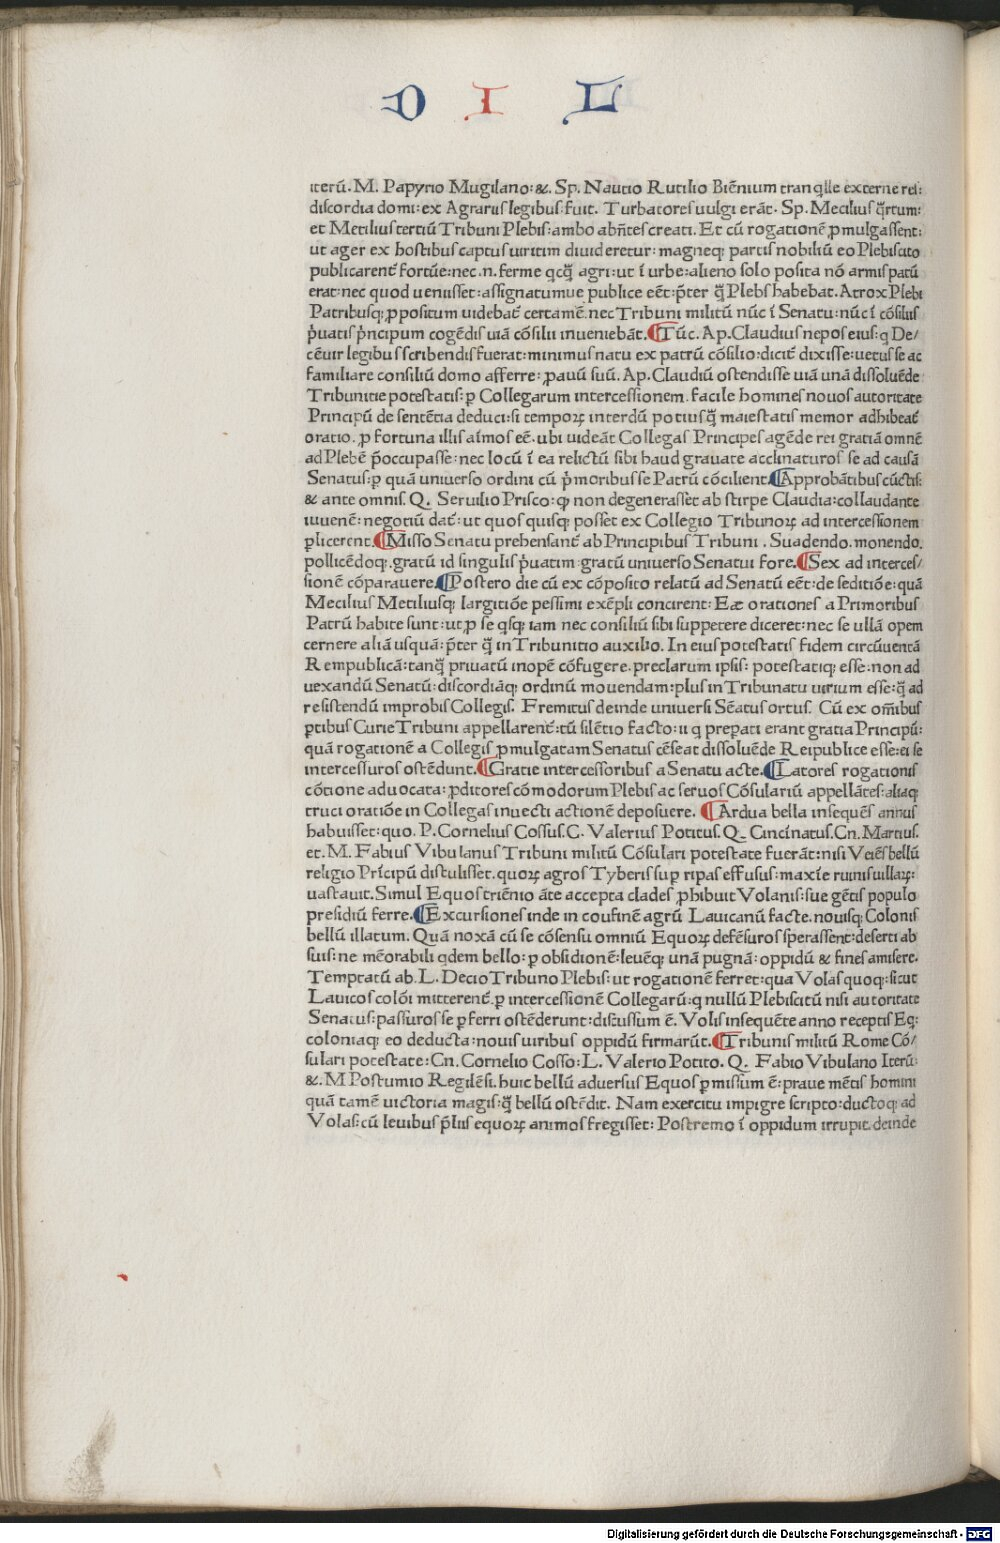 D I L
iterū. M. Papyrio Mugilano: &. Sp. Nautio Rutilio Biēnium tranq̄lle externe rei:
discordia domi: ex Agrariis legibus fuit. Turbatores uulgi erāt. Sp. Mecilius q̄rtum:
et Metilius tertiū Tribuni Plebis: ambo abn̄tes creati. Et cū rogationē ꝓmulgassent:
ut ager ex hostibus captus uiritim diuideretur: magneq; partis nobiliū eo Plebiscito
publicarent̄ fortūe: nec .n. ferme qcq̄ agri: ut ī urbe: alieno solo posita nō armis patū
erat: nec quod uenisset: assignatumue publice eēt: p̄ter q̄ Plebs habebat. Atrox Plebi
Patribusq; ꝓpositum uidebat̄ certamē. nec Tribuni militū nūc ī Senatu: nūc ī cōsiliis
p̓uatis p̓ncipum cogēdis uiā cōsilii inueniebāt. ¶Tūc. Ap. Claudius nepos eius: q De/
cēuir legibus scribendis fuerat: minimus natu ex patrū cōsilio: dicit̄ dixisse: uetus se ac
familiare consiliū domo afferre: ꝓauū suū. Ap. Claudiū ostendisse uiā unā dissoluēde
Tribunitie potestatis: ꝑ Collegarum intercessionem. facile homines nouos autoritate
Principū de sentētia deduci: si temporꝝ interdū potius q̄ maiestatis memor adhibeat̄
oratio. ꝓ fortuna illis aīmos eē. ubi uideāt Collegas Principes agēde rei gratiā omnē
ad Plebē p̄occupasse: nec locū ī ea relictū sibi haud grauate acclinaturos se ad causā
Senatus: ꝑ quā uniuerso ordini cū p̓moribus se Patrū cōcilient. ¶Approbātibus cūctis:
& ante omnis. Q. Seruilio Prisco: ꝙ non degenerasset ab stirpe Claudia: collaudante
iuuenē: negotiū dat̄: ut quos quisq; posset ex Collegio Tribunorꝝ ad intercessionem
ꝑlicerent. ¶Misso Senatu prehensant̄ ab Principibus Tribuni. Suadendo. monendo.
pollicēdoq;. gratū id singulis p̓uatim: gratū uniuerso Senatui fore. ¶Sex ad interces/
sionē cōparauere. ¶Postero die cū ex cōposito relatū ad Senatū eēt: de seditiōe: quā
Mecilius Metiliusq; largitiōe pessimi exēpli concirent: Eæ orationes a Primoribus
Patrū habite sunt: ut ꝓ se qsq; iam nec consiliū sibi suppetere diceret: nec se ullā opem
cernere aliā usquā: p̄ter q̄ in Tribunitio auxilio. In eius potestatis fidem circūuentā
Rempublicā: tanq̄ priuatū inopē cōfugere. preclarum ipsis: potestatiq; esse: non ad
uexandū Senatū: discordiāq; ordinū mouendam: plus in Tribunatu uirium esse: q̄ ad
resistendū improbis Collegis. Fremitus deinde uniuersi Sēatus ortus. Cū ex om̄ibus
ꝑtibus Curie Tribuni appellarent̄: tū silētio facto: ii q preꝑati erant gratia Principū:
quā rogationē a Collegis ꝓmulgatam Senatus cēseat dissoluēde Reipublice esse: ei se
intercessuros ostēdunt. ¶Gratie intercessoribus a Senatu acte. ¶Latores rogationis
cōtione aduocata: ꝓditores cōmodorum Plebis ac seruos Cōsulariū appellātes: aliaq;
truci oratiōe in Collegas inuecti actionē deposuere. ¶Ardua bella insequēs annus
habuisset: quo. P. Cornelius Cossus. C. Valerius Potitus. Q. Cincīnatus. Cn. Martius.
et. M. Fabius Vibulanus Tribuni militū Cōsulari potestate fuerāt: nisi Veiēs bellū
religio Prīcipū distulisset. quorꝝ agros Tyberis suꝑ ripas effusus: maxīe ruinis uillarꝝ:
uastauit. Simul Equos triēnio āte accepta clades ꝓhibuit Volanis: sue gētis populo
presidiū ferre. ¶Excursiones inde in coufinē agrū Lauicanū facte. nouisq; Colonis
bellū illatum. Quā noxā cū se cōsensu omniū Equorꝝ defēsuros sperassent: deserti ab
suis: ne mēorabili qdem bello: ꝑ obsidionē: leuēq; unā pugnā: oppidū & fines amisere.
Temptatū ab. L. Decio Tribuno Plebis: ut rogationē ferret: qua Volas quoq; sicut
Lauicos colōi mitterent̄. ꝑ intercessionē Collegarū: q nullū Plebiscitū nisi autoritate
Senatus: passuros se ꝑferri ostēderunt: discussum ē. Volis insequēte anno receptis Eq:
coloniaq; eo deducta: nouis uiribus oppidū firmarūt. ¶Tribunis militū Rome Cō/
sulari potestate: Cn. Cornelio Cosso: L. Valerio Potito. Q. Fabio Vibulano Iterū:
&. M Postumio Regilēsi. huic bellū aduersus Equos ꝑmissum ē: praue mētis homini
quā tamē uictoria magis: q̄ bellū ostēdit. Nam exercitu impigre scripto: ductoq; ad
Volas: cū leuibus p̄liis equorꝝ animos fregisset: Postremo ī oppidum irrupit. deinde
Digitalisierung gefördert durch die Deutsche Forschungsgemeinschaft - DFG